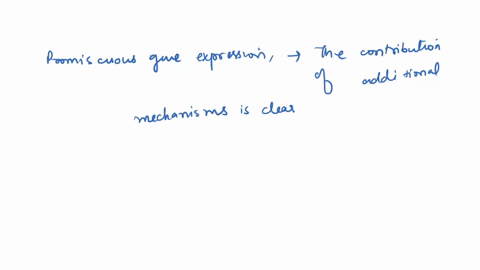 Promiscuous gene expression, → The contribution
of additional
mechanisms is clear